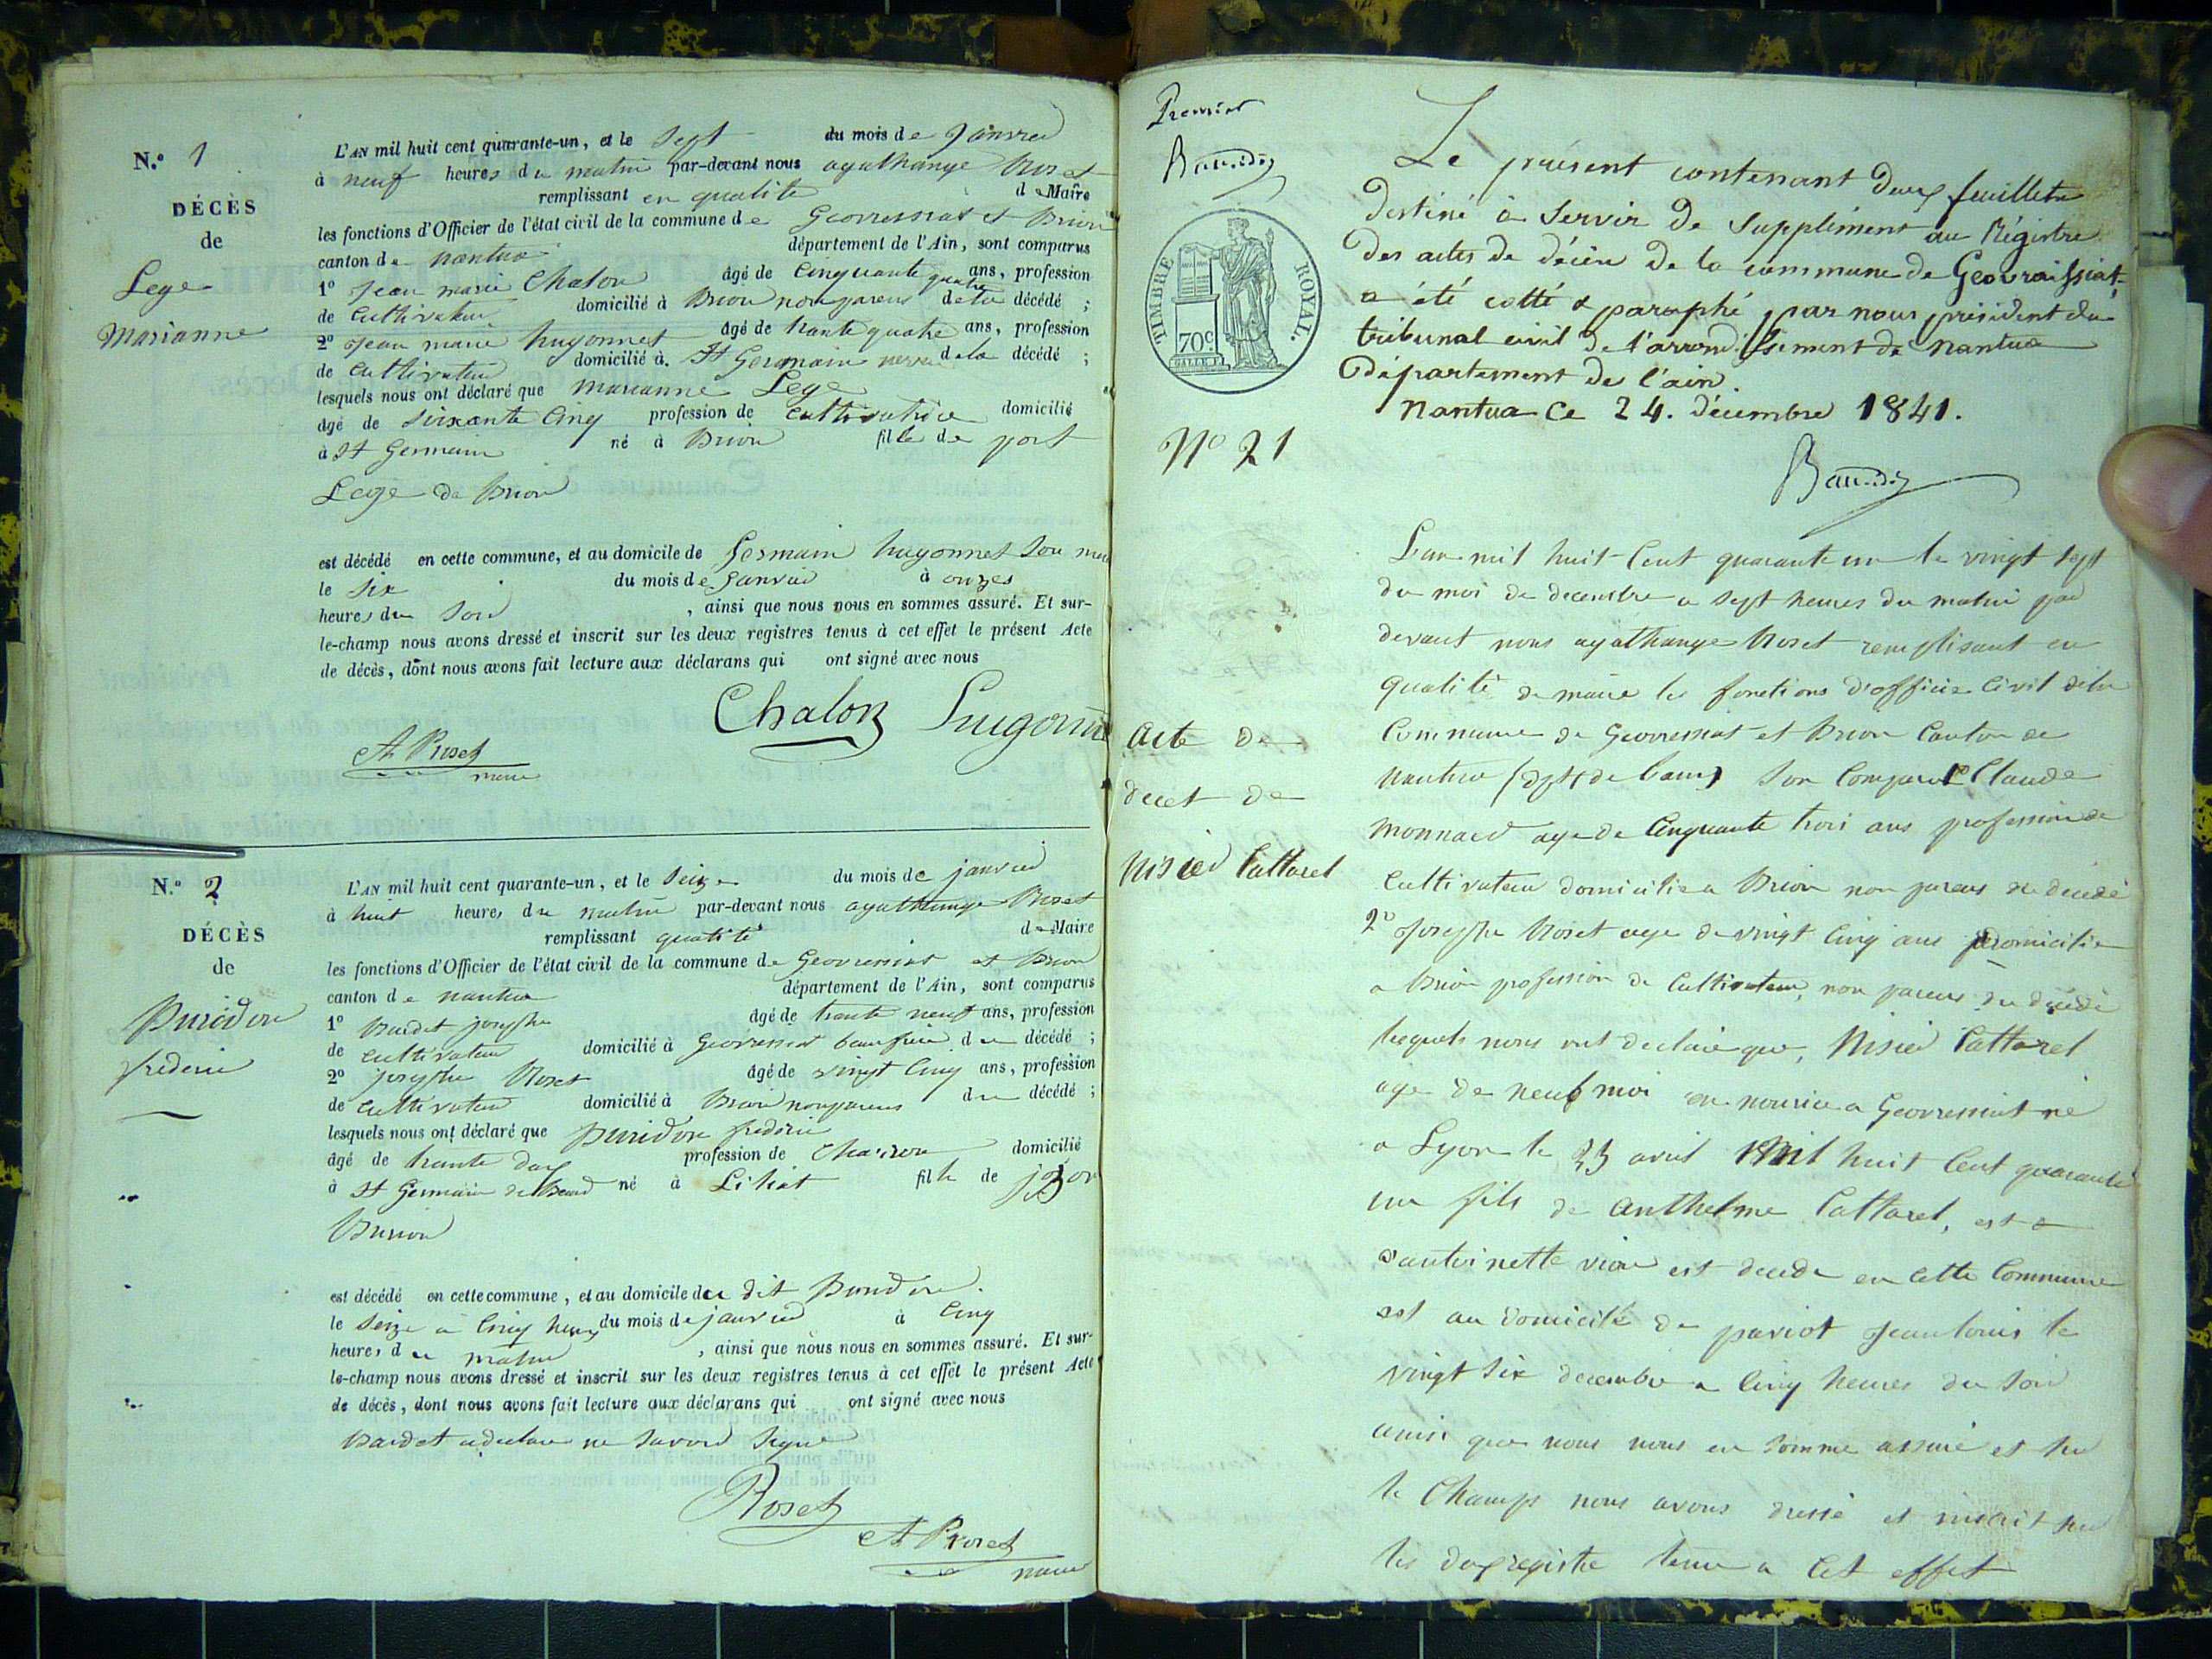 N.º 1
DÉCÈS
de
Lege
Marianne
L'AN mil huit cent quarante-un, et le Sept du mois de Janvier
à neuf heures du matin par-devant nous agathange Roset
remplissant en qualité de Maire
les fonctions d'Officier de l'état civil de la commune de Geovressiat et Brion
canton de nantua département de l'Ain, sont comparus
1º Jean marie Chalon âgé de Cinquante quatre ans, profession
de Cultivateur domicilié à Brion non parens de la décédé ;
2º Jean marie hugonnet âgé de trante quatre ans, profession
de Cultivateur domicilié à St Germain neveu de la décédé ;
lesquels nous ont déclaré que marianne Lege
âgé de soixante Cinq profession de Cultivatrice domicilié
à St Germain né à Brion fille de
Lege de Brion
est décédé en cette commune, et au domicile de Germain hugonnet Son mari
le Six du mois de Janvier à onzes
heures du Soir , ainsi que nous nous en sommes assuré. Et sur-
le-champ nous avons dressé et inscrit sur les deux registres tenus à cet effet le présent Acte
de décès, dont nous avons fait lecture aux déclarans qui ont signé avec nous
Chalon
A Roset
maire
N.º 2
DÉCÈS
de
frederic
L'AN mil huit cent quarante-un, et le Seize du mois de janvier
à huit heures du matin par-devant nous agathange Roset
remplissant qualité de Maire
les fonctions d'Officier de l'état civil de la commune de Geovressiat et Brion
canton de nantua département de l'Ain, sont comparus
1º josephe âgé de trante neuf ans, profession
de cultivateur domicilié à Geovressiat beau frere du décédé ;
2º josephe Roset âgé de vingt Cinq ans, profession
de Cultivateur domicilié à Brion non parens du décédé ;
lesquels nous ont déclaré que frederic
âgé de trante profession de domicilié
à St Germain né à fils de
est décédé en cette commune, et au domicile du dit
le Seize à Cinq heures du mois de janvier à Cinq
heures du matin , ainsi que nous nous en sommes assuré. Et sur-
le-champ nous avons dressé et inscrit sur les deux registres tenus à cet effet le présent Acte
de décès, dont nous avons fait lecture aux déclarans qui ont signé avec nous
a declare ne Savoir Signe
Roset
A Roset
maire
Premier
TIMBRE ROYAL.
70c
Le présent contenant deux feuillets
destiné à servir de supplément au Régistre
des actes de décès de la commune de Geovraissiat,
a été cotté & paraphé par nous président du
tribunal civil de l'arrondissement de Nantua
département de l'ain.
Nantua Ce 24. décembre 1841.
Nº 21
L'an mil huit Cent quarante un le vingt sept
du moi de decembre a sept heures du matin par
devant nous agathange Roset remplisant en
qualité de maire les fonctions d'officier Civil de la
Commune de Geovressiat et Brion Canton de
Nantua Son Claude
monnard age de Cinquante trois ans profession de
Cultivateur domicilie a Brion non parens du decedé
2º Josephe Roset age de vingt Cinq ans domicilie
a Brion profession de Cultivateur, non parens du decedé
lesquels nous ont declaré que, Nisier Cattarel
age de neuf moi en nourice a Geovressiat né
a Lyon le avril Mil huit Cent quarante
un fils de Anthelme Cattarel, est
antoinette est decede en Cette Commune
est au domicile de pariot Jean louis le
vingt Six decembre a Cinq heures du Soir
ainsi que nous nous en Somme assuré et sur
le Champs nous avons dressé et inscrit sur
les registre tenu a Cet effet
Acte de
decet de
Nisier Cattarel